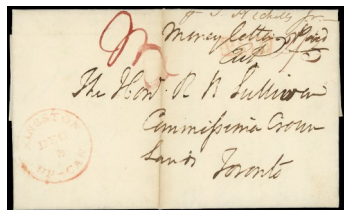 Money letter Paid
The Honl. R B Sullivan
Commissioner Crown
Lands Toronto
KINGSTON
DEC
UP-CAN